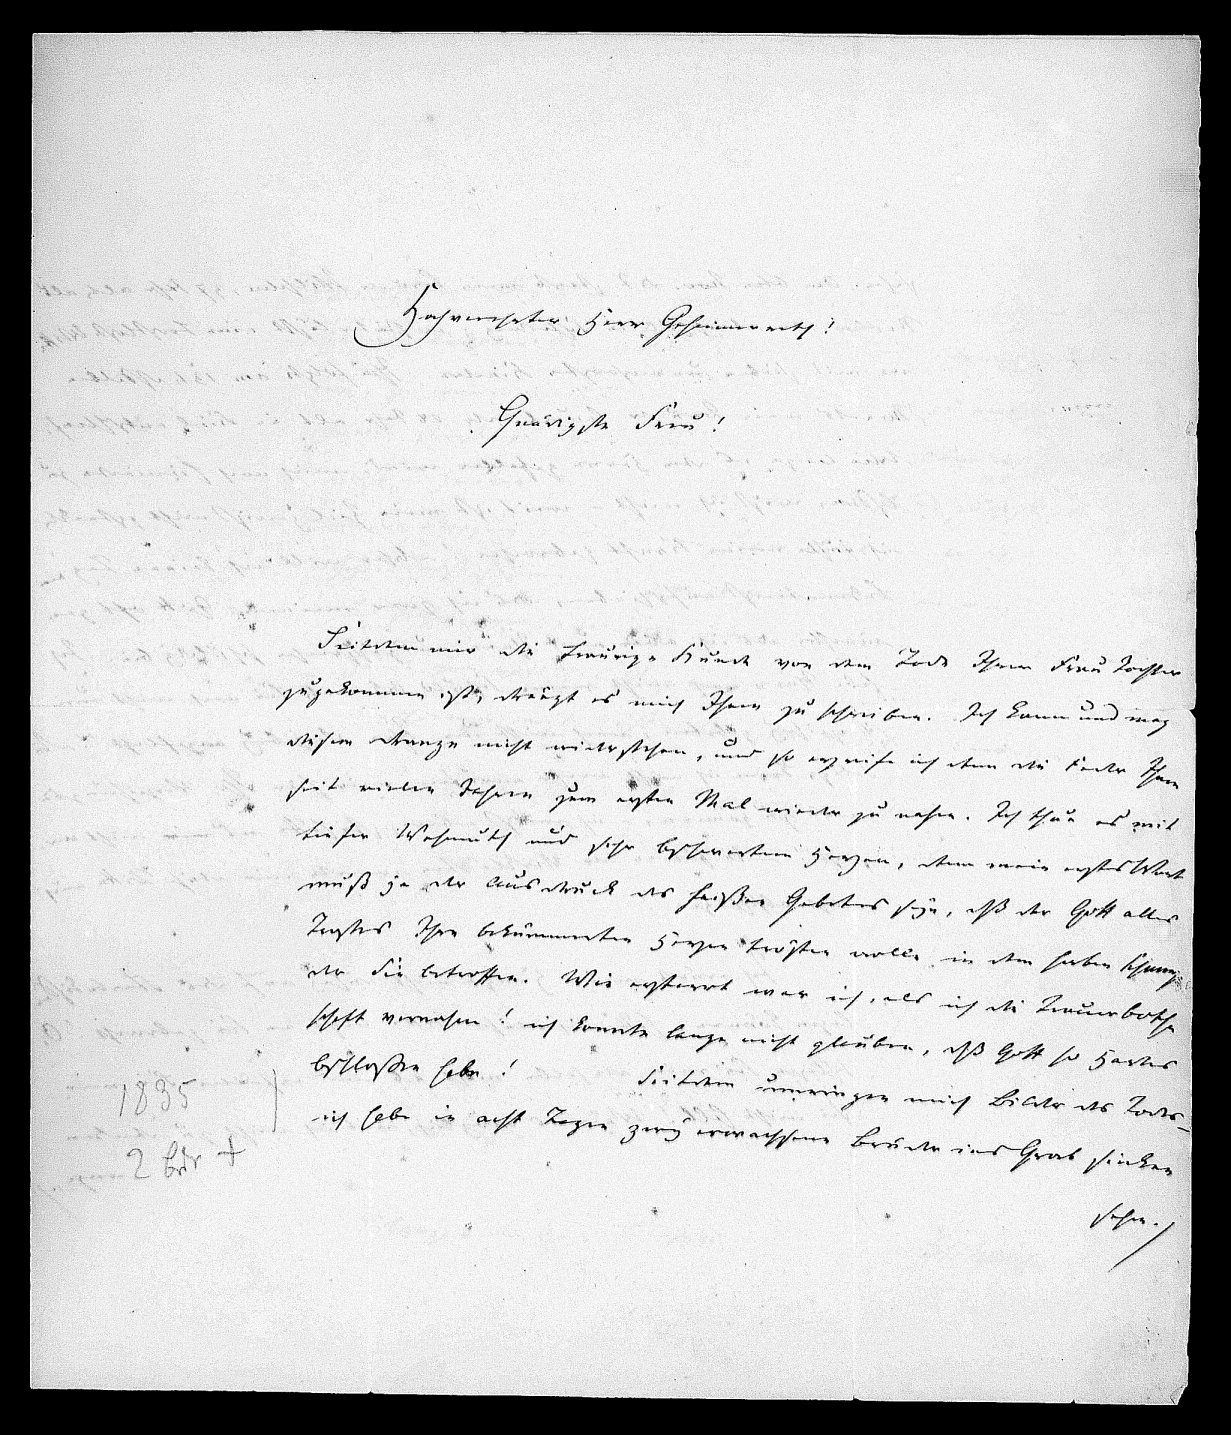 Hochverehrter Herr Geheimerath!
Gnädigste Frau!
Seitdem mir die traurige Kunde von dem Tode Ihrer Frau Tochter
zugekommen ist, drängt es mich Ihnen zu schreiben. Ich kann und mag
diesem Drange nicht widerstehen, und so ergreife ich denn die Feder Ihnen
seit vielen Jahren zum ersten Mal wieder zu nahen. Ich thue es mit
tiefer Wehmuth und sehr beschwertem Herzen, denn mein erstes Wort
muß ja der Ausdruck des heißen Gebetes sein, daß der Gott alles
Trostes Ihre bekümmerten Herzen trösten wolle in dem herben Schmerz
der Sie betroffen. Wie erstarrt war ich, als ich die Trauerboth
schaft vernahm! ich konnte lange nicht glauben, daß Gott so Hartes
beschloßen habe! Seitdem umringen mich Bilder des Todes-
ich habe in acht Tagen zwei erwachsene Brüder ins Grab sinken
sehen.
1835
2 Brdr +